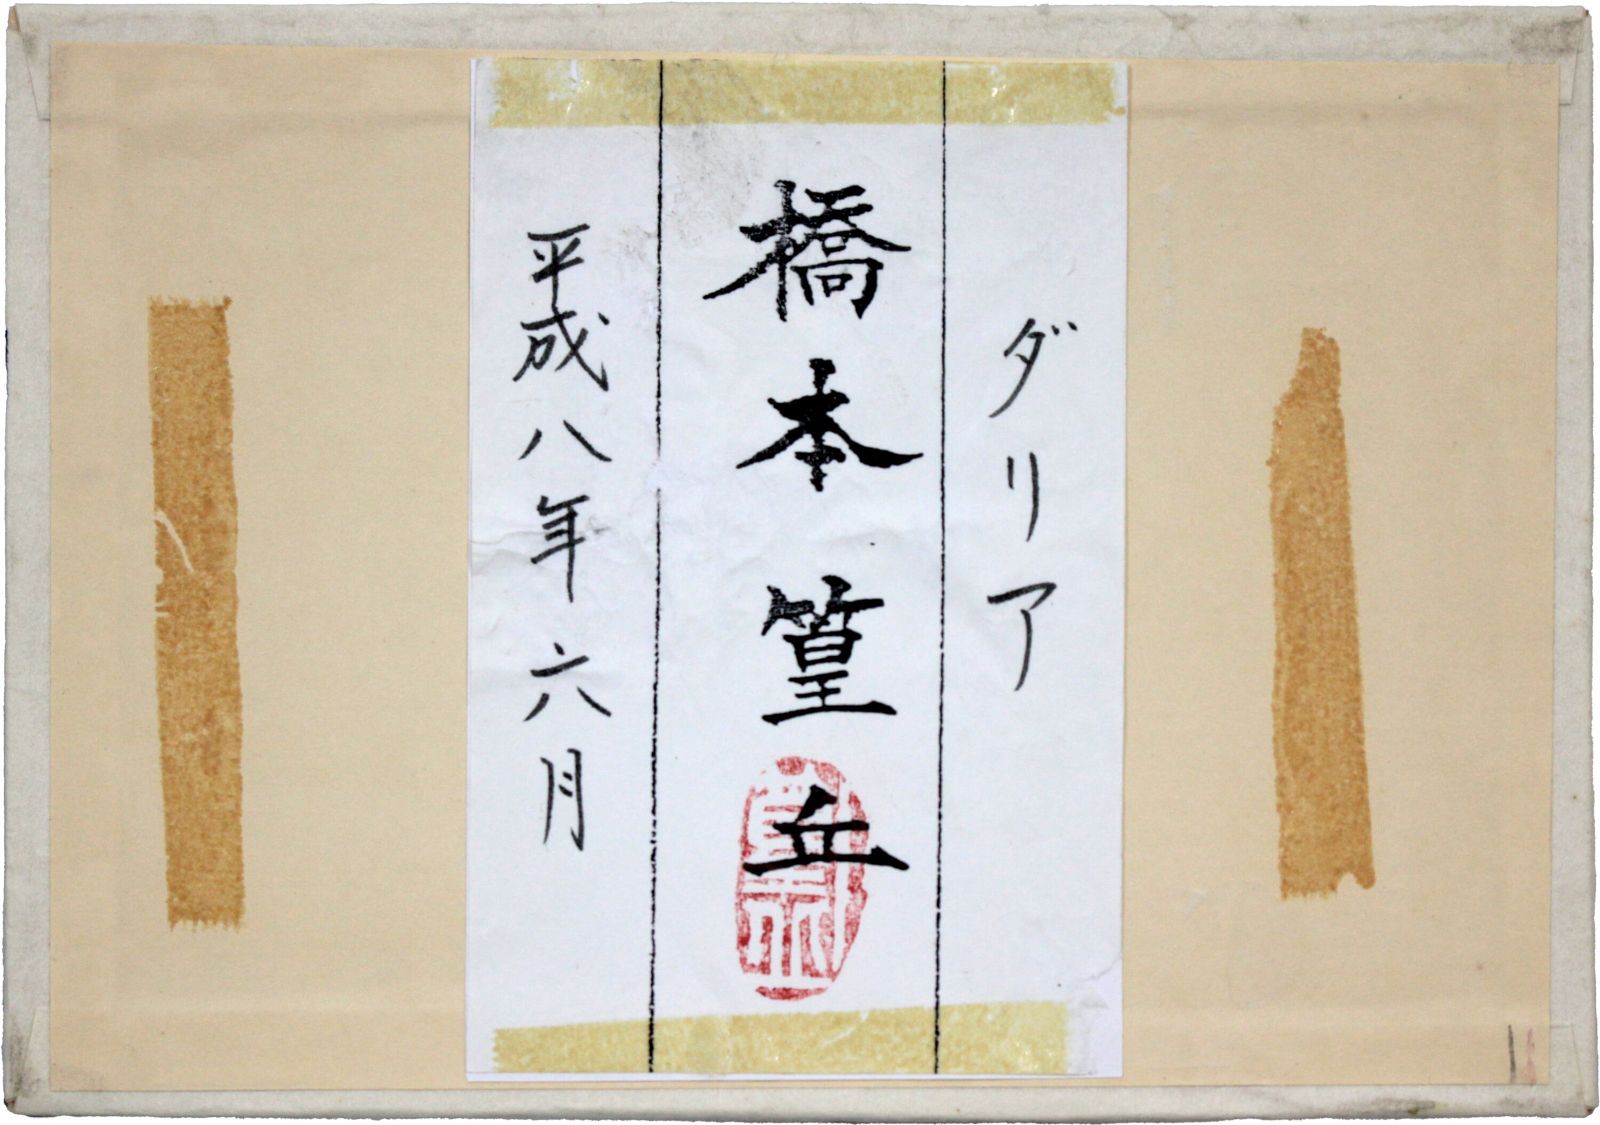 ダリア
橋本篁岳
平成八年六月